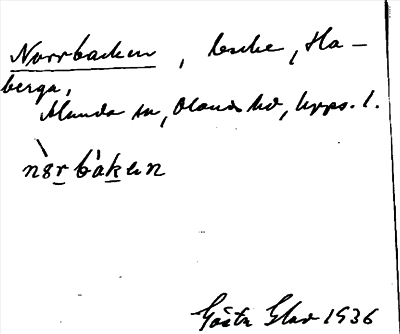 Norrbacken, backe, Ha-
berga,
Alunda sn, Olands hd, Upps. l.
nòrbàken
Gösta Glav 1936